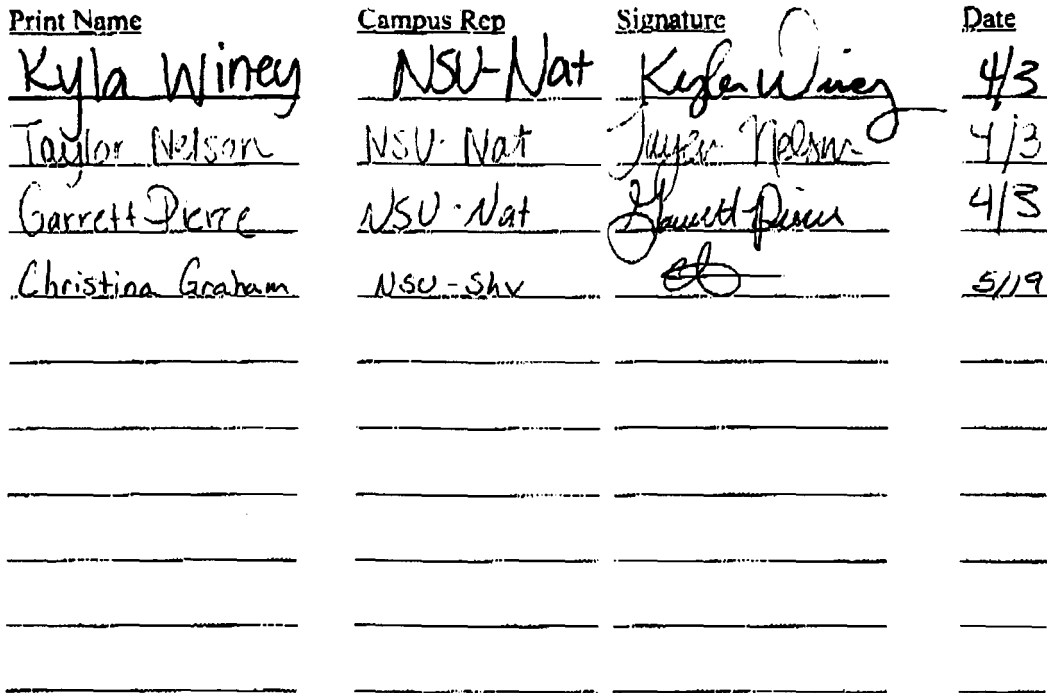 Print Name Campus Rep Signature Date
Kyla Winey NSU-Nat Kyla Winey 4/3
Taylor Nelson NSU-Nat Taylor Nelson 4/3
Garrett Pierre NSU-Nat Garrett Pierre 4/3
Christina Graham NSU-Shv 5/19